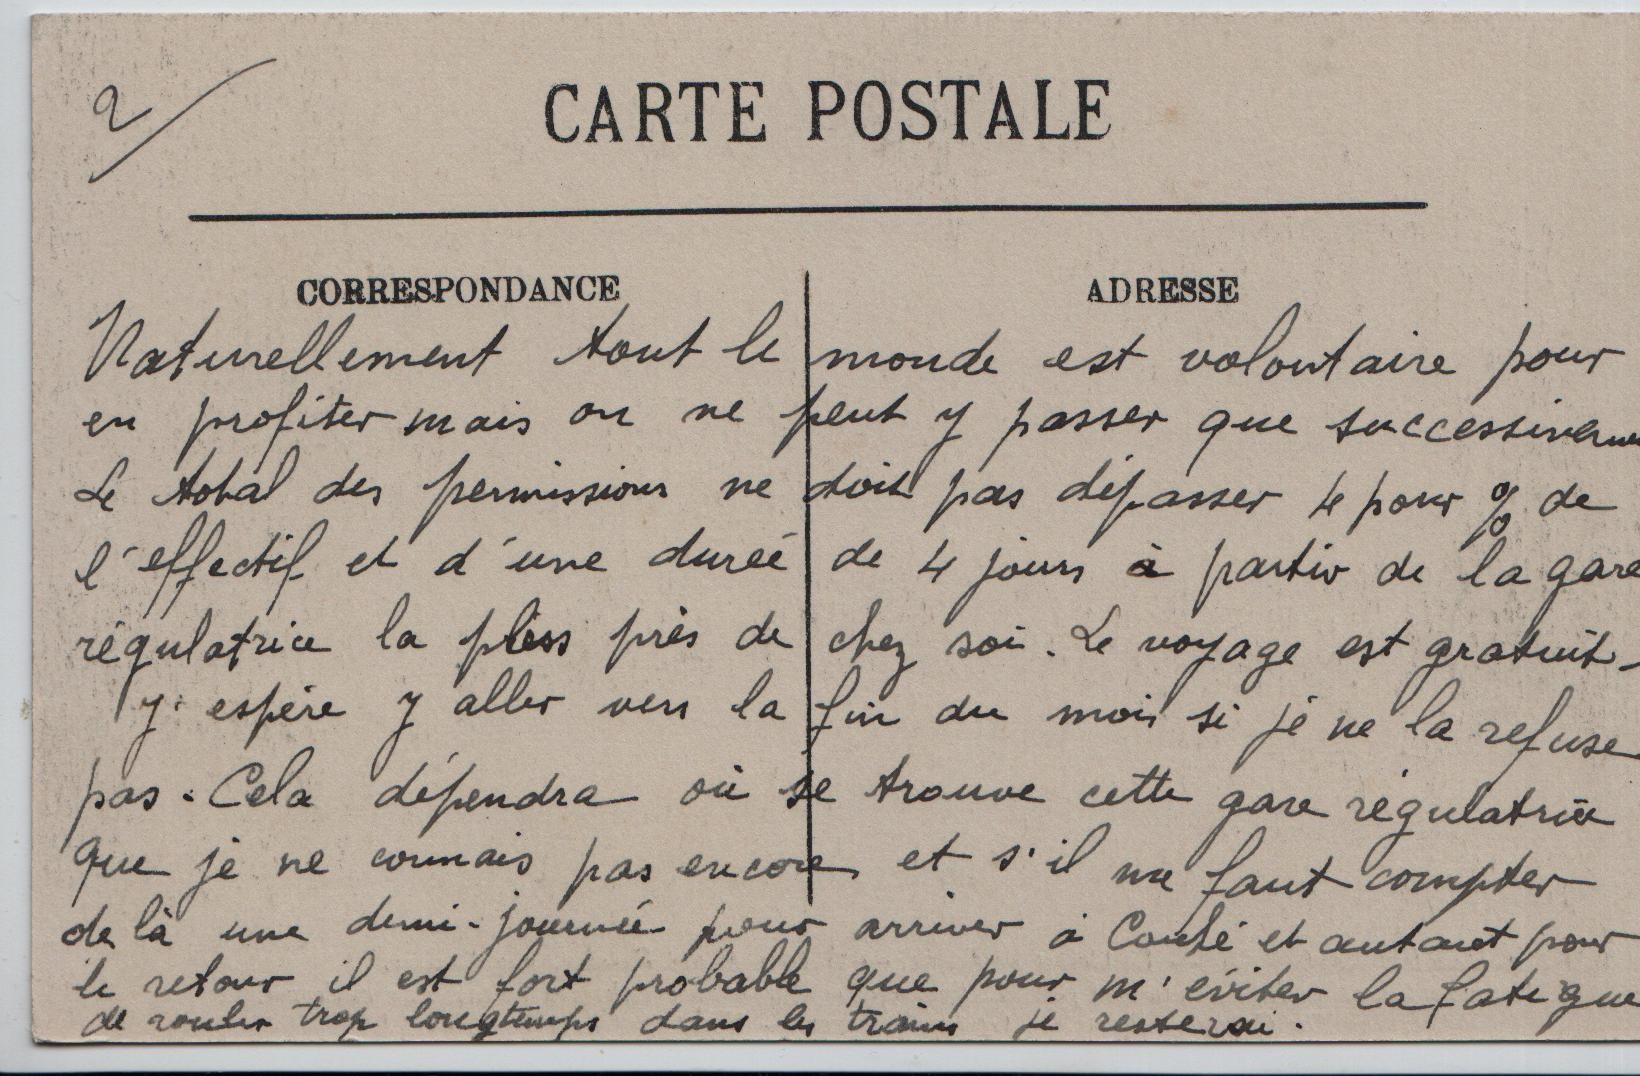 2/
CARTE POSTALE
CORRESPONDANCE
ADRESSE
Naturellement tout le monde est volontaire pour
en profiter mais on ne peut y passer que successivem
Le total des permissions ne doit pas dépasser 4 pour % de
l'effectif et d'une durée de 4 jours à partir de la gare
régulatrice la plus près de chez soi. Le voyage est gratuit -
J'espère y aller vers la fin du mois si je ne la refuse
pas. Cela dépendra où se trouve cette gare régulatrice
que je ne connais pas encore, et s'il me faut compter
de là une demi-journée pour arriver à Couhé et autant pour
le retour il est fort probable que pour m'éviter la fatigue
de rouler trop longtemps dans les trains je resterai.